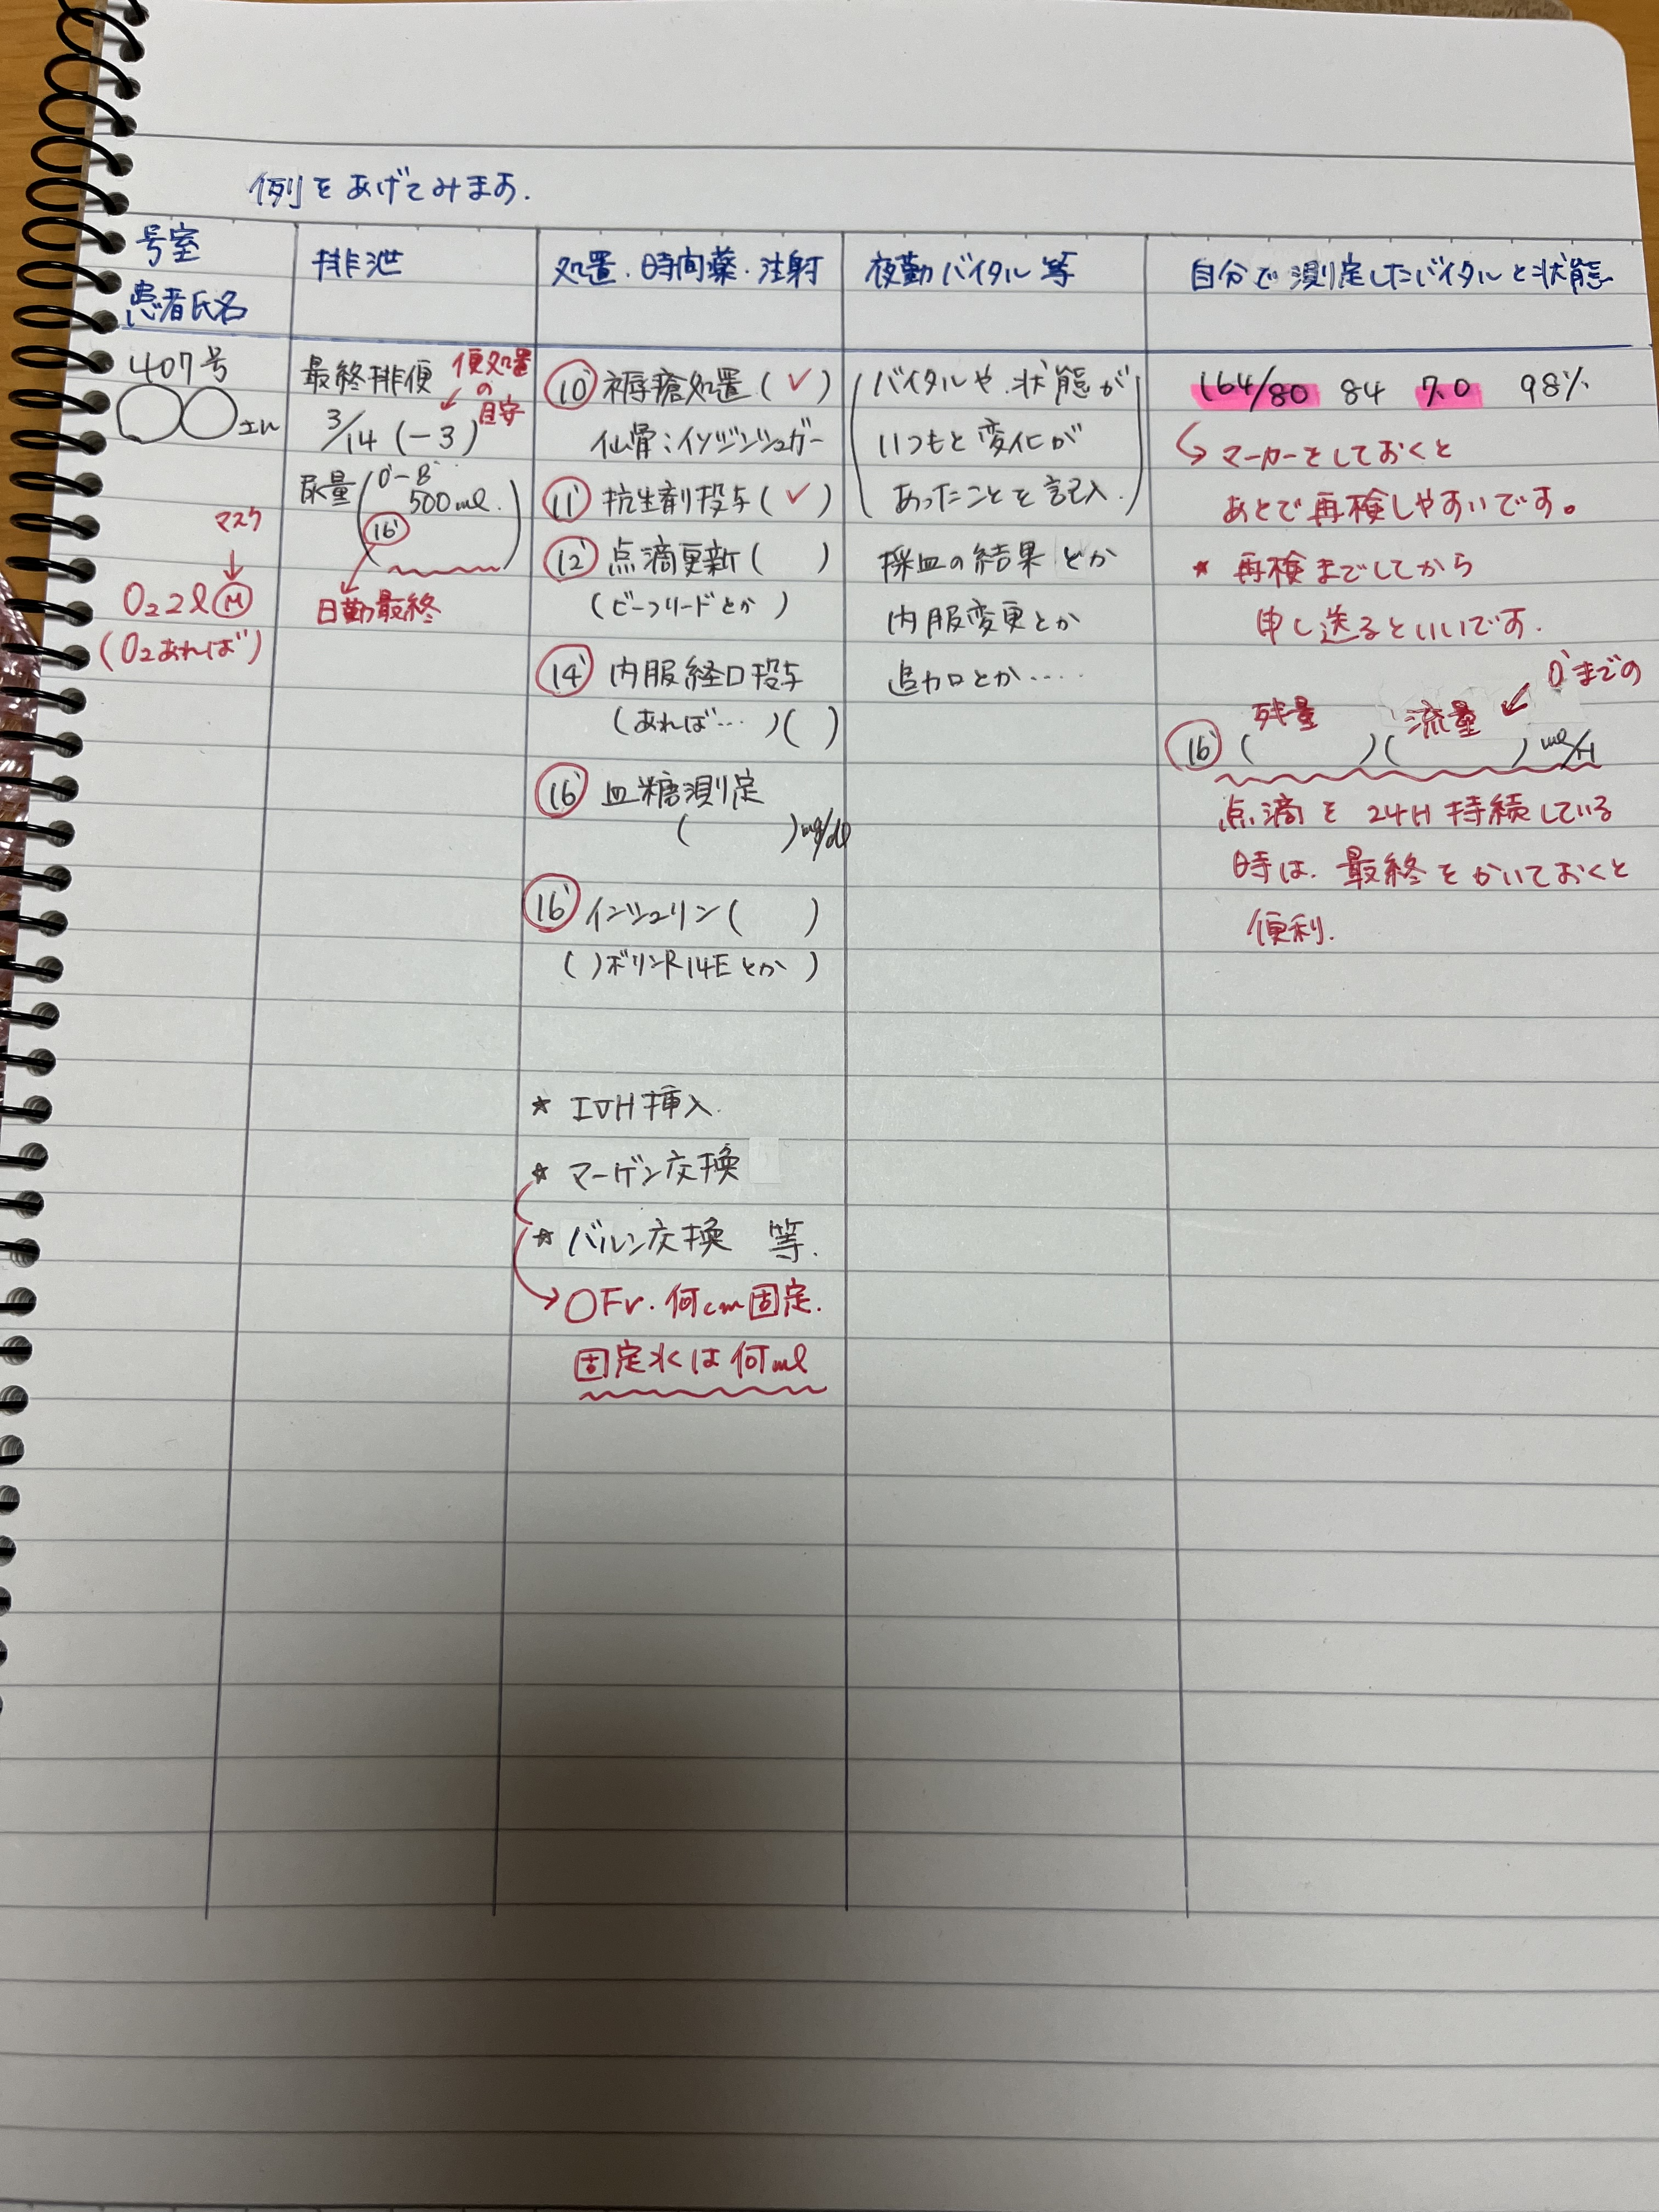 例をあげてみます.
号室
患者氏名
排泄
処置.時間薬.注射
夜勤バイタル等
自分で測定したバイタルと状態
407号
○○さん
マスク
↓
O₂ 2ℓ Ⓜ
(O₂あれば)
最終排便
3/14 (-3)
便処置
の
目安
尿量(0'-8'
500ml.
16')
日勤最終
10' 褥瘡処置(✓)
仙骨:イソジンシュガー
11' 抗生剤投与(✓)
12' 点滴更新( )
(ビーフリードとか)
14' 内服経口投与
(あれば…)( )
16' 血糖測定
( )mg/dl
16' インシュリン( )
( )ボリンR14Eとか)
☆ IVH挿入.
☆ マーゲン交換
☆ バルン交換 等.
→ ○Fr.何cm固定.
固定水は何ml
(バイタルや.状態が
いつもと変化が
あったことを記入.)
採血の結果とか
内服変更とか
追加とか‥‥
164/80 84 7.0 98%
マーカーをしておくと
あとで再検しやすいです。
★ 再検までしてから
申し送るといいです.
0'までの
残量 流量
16' ( )( ) ml/H
点滴を24H持続している
時は.最終をかいておくと
便利.